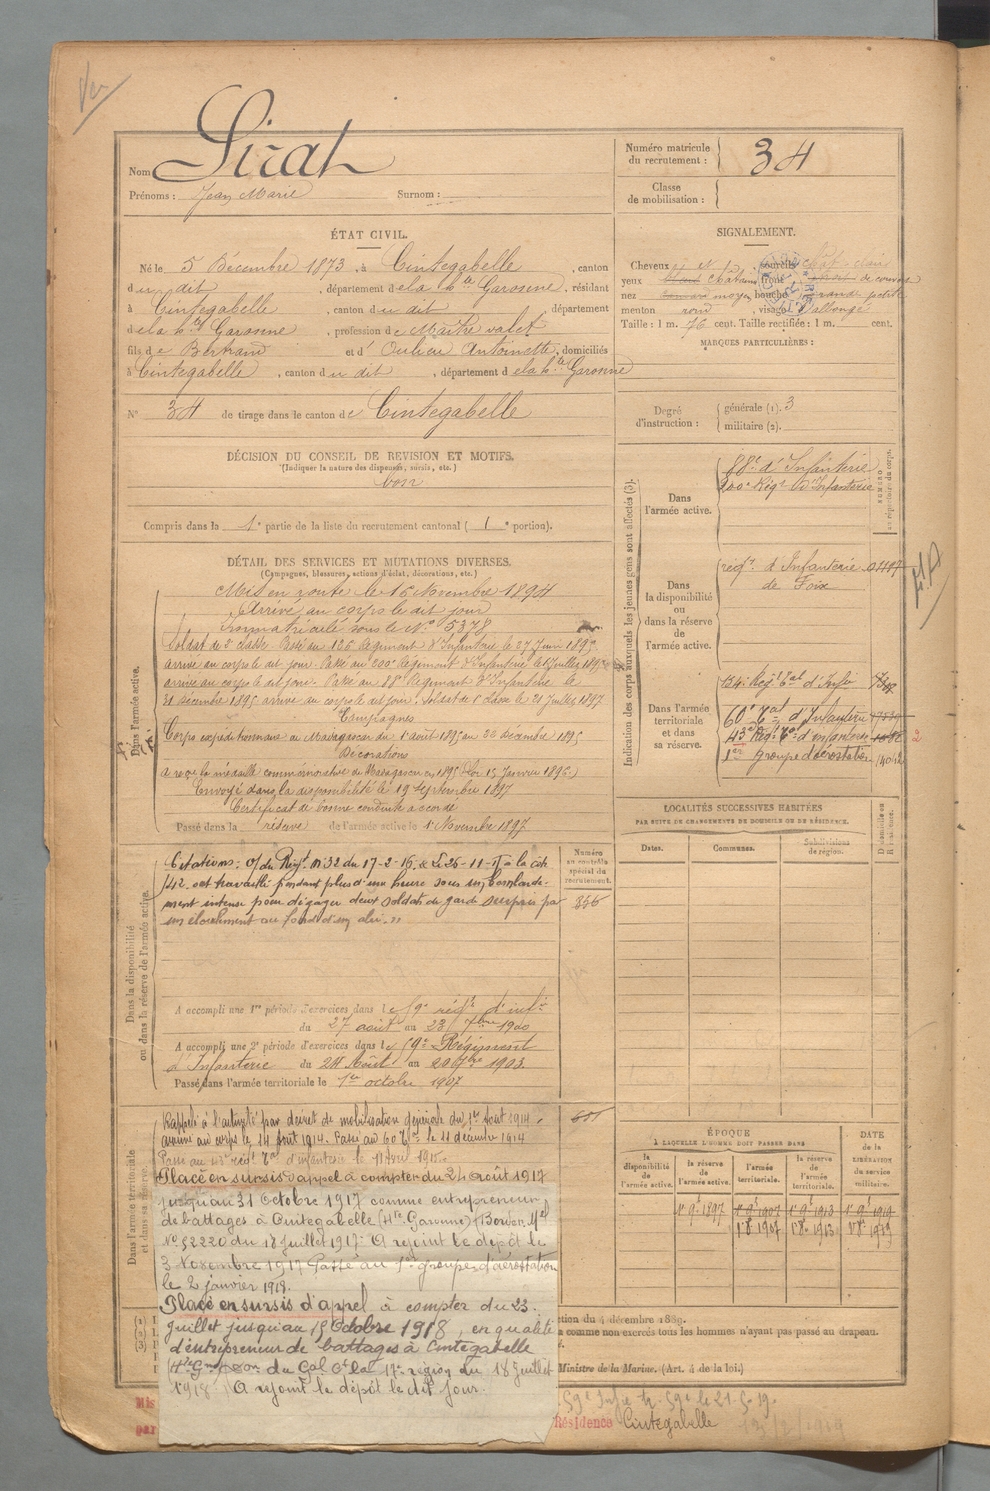 Nom Sirat
Prénoms : Jean Marie Surnom :
Numéro matricule du recrutement : 34
Classe de mobilisation :
ÉTAT CIVIL.
Né le 5 Décembre 1873, à Cintegabelle, canton
dudit, département de la hte Garonne, résidant
à Cintegabelle, canton du dit département
de la hte Garonne, profession de Maître valet
fils de Bertrand et d' Oulieu Antoinette, domiciliés
à Cintegabelle, canton du dit, département de la hte Garonne
N° 34 de tirage dans le canton de Cintegabelle
DÉCISION DU CONSEIL DE REVISION ET MOTIFS.
(Indiquer la nature des dispenses, sursis, etc.)
bon
Compris dans la 1e partie de la liste du recrutement cantonal (1e portion).
SIGNALEMENT.
Cheveux et sourcils chât. clair
yeux châtains front de couvert
nez moyen bouche petite
menton rond, visage allongé
Taille : 1 m. 76 cent. Taille rectifiée : 1 m. cent.
MARQUES PARTICULIÈRES :
Degré d'instruction : générale (1). 3
militaire (2).
DÉTAIL DES SERVICES ET MUTATIONS DIVERSES.
(Campagnes, blessures, actions d'éclat, décorations, etc.)
Dans l'armée active.
Mis en route le 16 Novembre 1894
Arrivé au corps le dit jour
Immatriculé sous le N° 5378
Soldat de 2e classe. Passé au 126 Régiment d'Infanterie le 27 Juin 1895
arrivé au corps le dit jour. Passé au 200e Régiment d'Infanterie le 1 Juillet 1895
arrivé au corps le dit jour. Passé au 88e Régiment d'Infanterie le
31 décembre 1895 arrivé au corps le dit jour. Soldat de 1e classe le 21 Juillet 1897
Campagnes
Corps expéditionnaire de Madagascar du 1 août 1895 au 26 décembre 1895
Décorations
a reçu la médaille commémorative de Madagascar en 1895 (Loi 15 Janvier 1896)
Envoyé dans la disponibilité le 19 Septembre 1897
Certificat de bonne conduite accordé
Passé dans la réserve de l'armée active le 1 Novembre 1897
Dans la disponibilité ou dans la réserve de l'armée active.
Citations : O/ du Régt. N° 32 du 17-2-16. "Le 26-11-15 à la côte
142. ont travaillé pendant plus d'une heure sous un bombarde-
ment intense pour dégager deux soldats de garde surpris par
un éboulement au fond d'un abri. "
Numéro au contrôle spécial du recrutement.
856
A accompli une 1re période d'exercices dans le 59e régt d'infie
du 27 août au 23 7bre 1900
A accompli une 2e période d'exercices dans le 59e Régiment
d'Infanterie du 24 Août au 20 7bre 1903.
Passé dans l'armée territoriale le 1er octobre 1907
Dans l'armée territoriale et dans sa réserve.
Rappelé à l'activité par décret de mobilisation générale du 1er Août 1914.
arrivé au corps le 14 août 1914. Passé au 60 Tal le 11 décembre 1914
Passé au 43e régt Tal d'infanterie le 11 avril 1915.
Placé en sursis d'appel à compter du 24 août 1917
jusqu'au 31 Octobre 1917 comme entrepreneur
de battages à Cintegabelle (Hte Garonne) (Bord. Mel
N° 52220 du 18 Juillet 1917. A rejoint le dépôt le
3 Novembre 1917 Passé au 1er groupe d'aérostation
le 2 janvier 1918.
Placé en sursis d'appel à compter du 23
juillet jusqu'au 15 Octobre 1918, en qualité
d'entrepreneur de battages à Cintegabelle
Hte Gne du Gal Ct la 17e région du 18 Juillet
1918. A rejoint le dépôt le dit jour.
Indication des corps auxquels les jeunes gens sont affectés (3).
NUMÉRO au répertoire du corps.
Dans l'armée active.
88e d'Infanterie
200e Régt d'Infanterie
Dans la disponibilité ou dans la réserve de l'armée active.
regt. d'Infanterie
de Foix
Dans l'armée territoriale et dans sa réserve.
134e Régt Tal d'Infie
60e Tal d'Infanterie
43e Régt Tal d'infanterie
1er groupe d'aérostation
LOCALITÉS SUCCESSIVES HABITÉES
PAR SUITE DE CHANGEMENTS DE DOMICILE OU DE RÉSIDENCE.
Dates. Communes. Subdivisions de région.
ÉPOQUE
À LAQUELLE L'HOMME DOIT PASSER DANS
la disponibilité de l'armée active.
la réserve de l'armée active.
l'armée territoriale.
la réserve de l'armée territoriale.
DATE de la LIBÉRATION du service militaire.
1e 9e 1897 1e 9e 1907 1e 9e 1913 1e 9e 1919
1 8 1907 1 8 1913 1 8 1919
tion du 4 décembre 1889.
a comme non exercés tous les hommes n'ayant pas passé au drapeau.
Ministre de la Marine. (Art. 4 de la loi.)
Mis
par
Résidence Cintegabelle